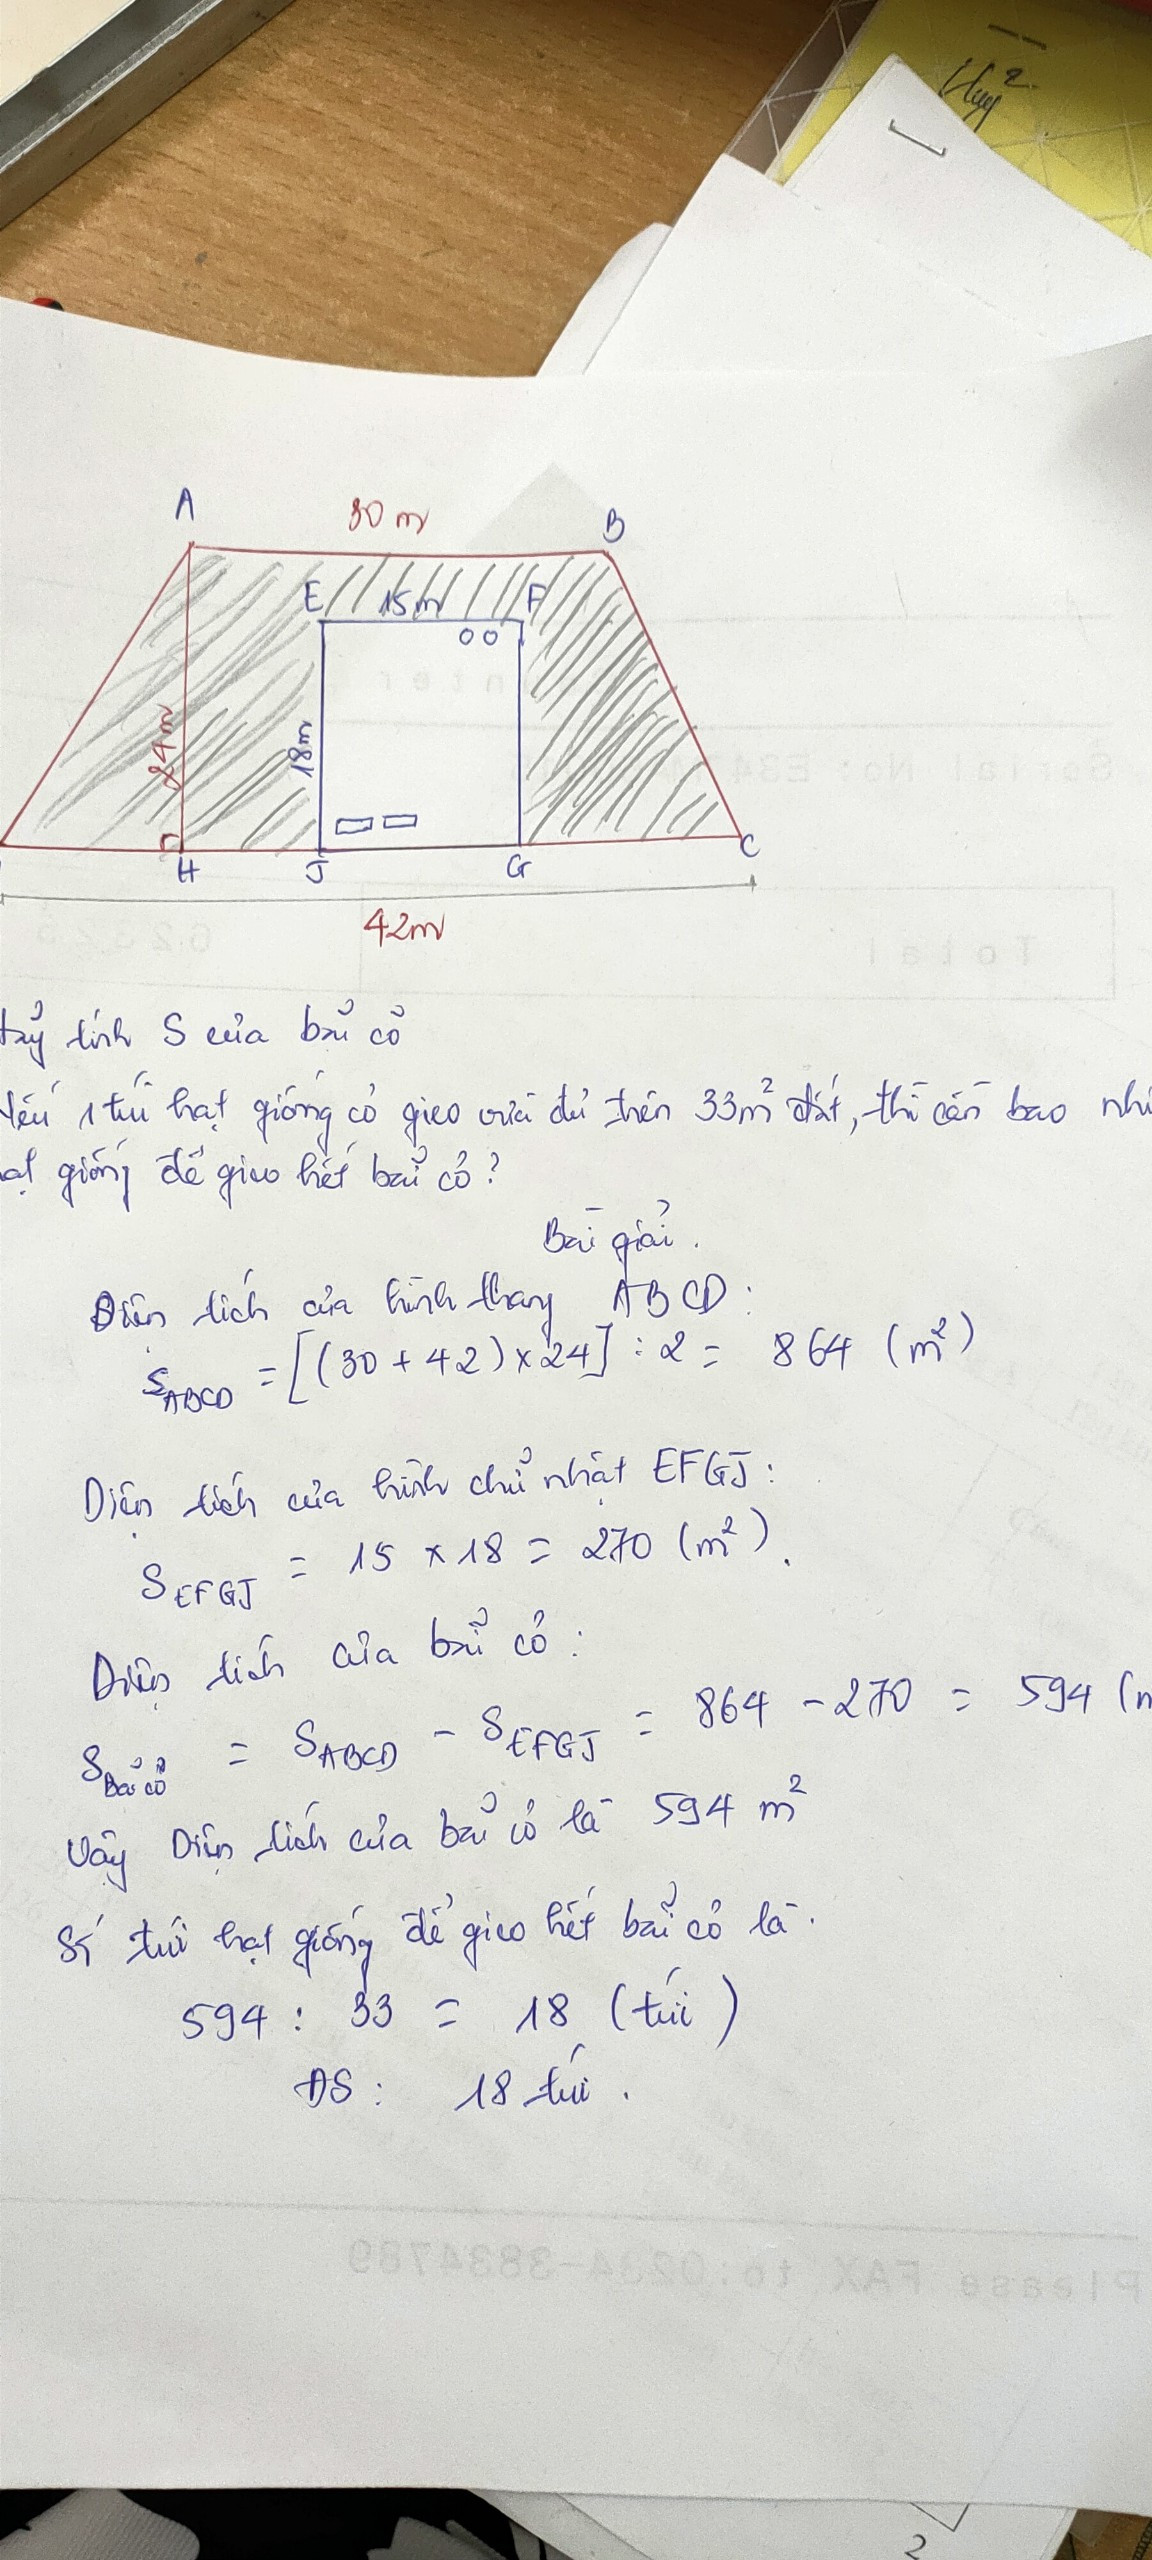 Huy 2
A
30 m
B
E
15m
F
24m
18m
H
J
G
C
42m
tính S của bãi cỏ
Nếu 1 túi hạt giống cỏ gieo vừa đủ trên 33m² đất, thì cần bao
giống để gieo hết bãi cỏ?
Bài giải.
Diện tích của hình thang ABCD:
S_ABCD = [(30 + 42) x 24] : 2 = 864 (m²)
Diện tích của hình chữ nhật EFGJ:
S_EFGJ = 15 x 18 = 270 (m²).
Diện tích của bãi cỏ:
S_Bãi cỏ = S_ABCD - S_EFGJ = 864 - 270 = 594 (m
Vậy Diện tích của bãi cỏ là 594 m²
Số túi hạt giống để gieo hết bãi cỏ là.
594 : 33 = 18 (túi)
ĐS: 18 túi.
Total
Please FAX to:0234-3834789
2